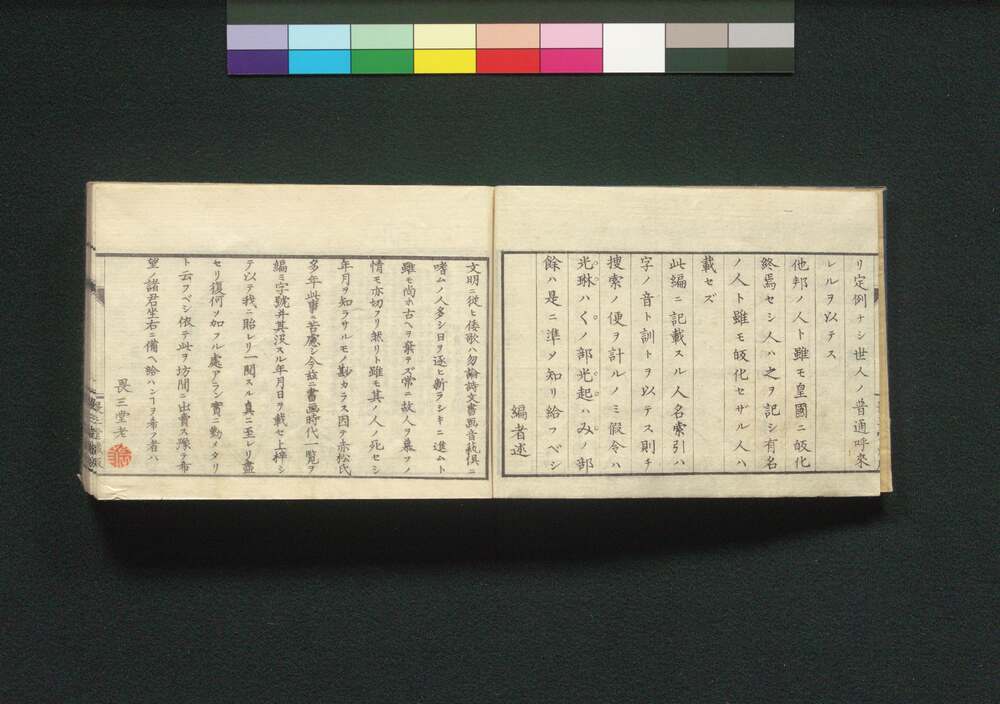 リ定例ナシ世人ノ普通呼來
レルヲ以テス
他邦ノ人ト雖モ皇國ニ皈化
終焉セシ人ハ之ヲ記シ有名
ノ人ト雖モ皈化セザル人ハ
載セズ
此編ニ記載スル人名索引ハ
字ノ音ト訓トヲ以テス則チ
搜索ノ便ヲ計ルノミ假令ハ
光琳ハくノ部光起ハみノ部
餘ハ是ニ準メ知リ給フベシ
編者述
文明ニ從ヒ倭歌ハ勿論詩文書画音㽵倶ニ
嗜ムノ人多シ日ヲ逐ヒ新ラシキニ進ムト
雖モ尚ホ古ヘヲ棄ヲズ常ニ故人ヲ慕フノ
情モ亦切フリ然リト雖モ其ノ人ノ死セシ
年月ヲ知ラサルモノ尠カラス因テ赤松氏
多年此事ニ苦慮シ今茲ニ書画時代一覧ヲ
編ミ字號并其沒スル年月日ヲ載セ上梓シ
テ以テ我ニ貽レリ一閲スル真ニ至レリ盡
セリ復何ヲ加フル處アラン實ニ勤メタリ
ト云フベシ依テ此ヲ坊間ニ出賣ス豫テ希
望ノ諸君坐右ニ備ヘ給ハンヿヲ希フ者ハ
畏三堂老